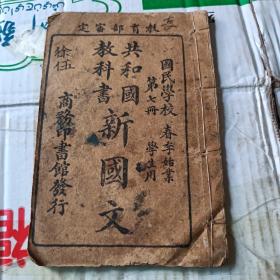 教育部審定
國民學校 春季始業
第七冊 學生用
共和國
教科書
新國文
商務印書館發行
徐伍